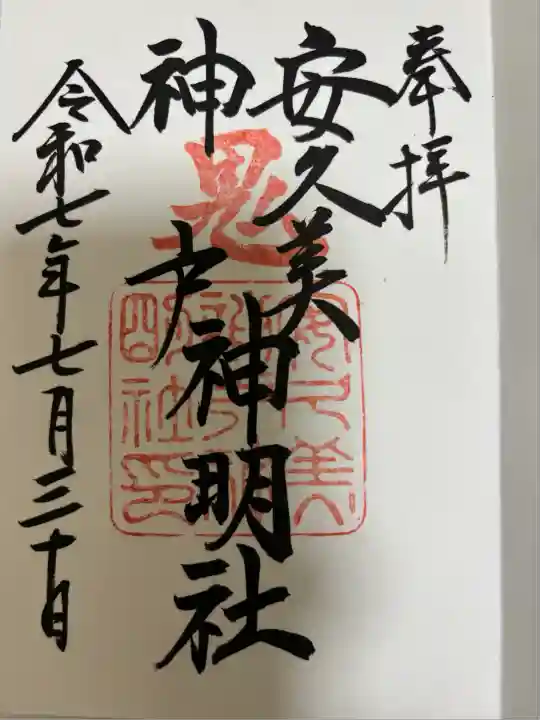 奉拝
安久美
神戸神明社
鬼
安久美神戸神明社印
令和七年七月三十日